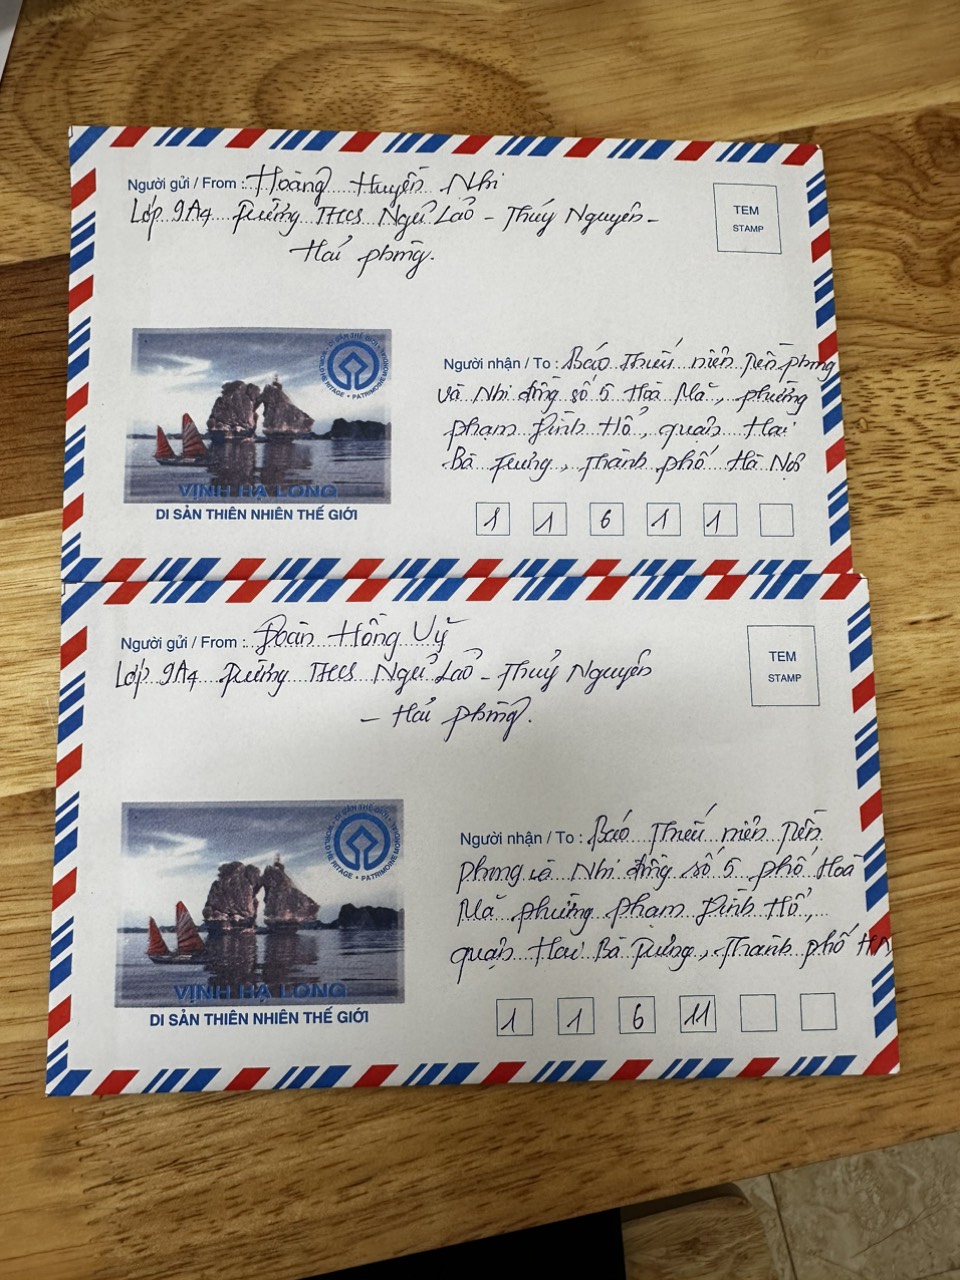 Người gửi / From : Hoàng Huyền Nhi
Lớp 9A4 Trường THCS Ngũ Lão - Thủy Nguyên -
Hải phòng.
TEM
STAMP
DI SẢN THẾ GIỚI • PATRIMOINE MONDIAL • WORLD HERITAGE
VỊNH HẠ LONG
DI SẢN THIÊN NHIÊN THẾ GIỚI
Người nhận / To : Báo Thiếu niên Tiền phong
và Nhi đồng số 5 Hoà Mã, phường
phạm Đình Hổ, quận Hai
Bà Trưng, Thành phố Hà Nội
1 1 6 1 1
Người gửi / From : Đoàn Hồng Vỹ
Lớp 9A4 Trường THCS Ngũ Lão - Thủy Nguyên
- Hải phòng.
TEM
STAMP
DI SẢN THẾ GIỚI • PATRIMOINE MONDIAL • WORLD HERITAGE
VỊNH HẠ LONG
DI SẢN THIÊN NHIÊN THẾ GIỚI
Người nhận / To : Báo Thiếu niên Tiền
phong và Nhi đồng số 5 phố Hoà
Mã phường Phạm Đình Hổ,
quận Hai Bà Trưng, Thành phố HN
1 1 6 11